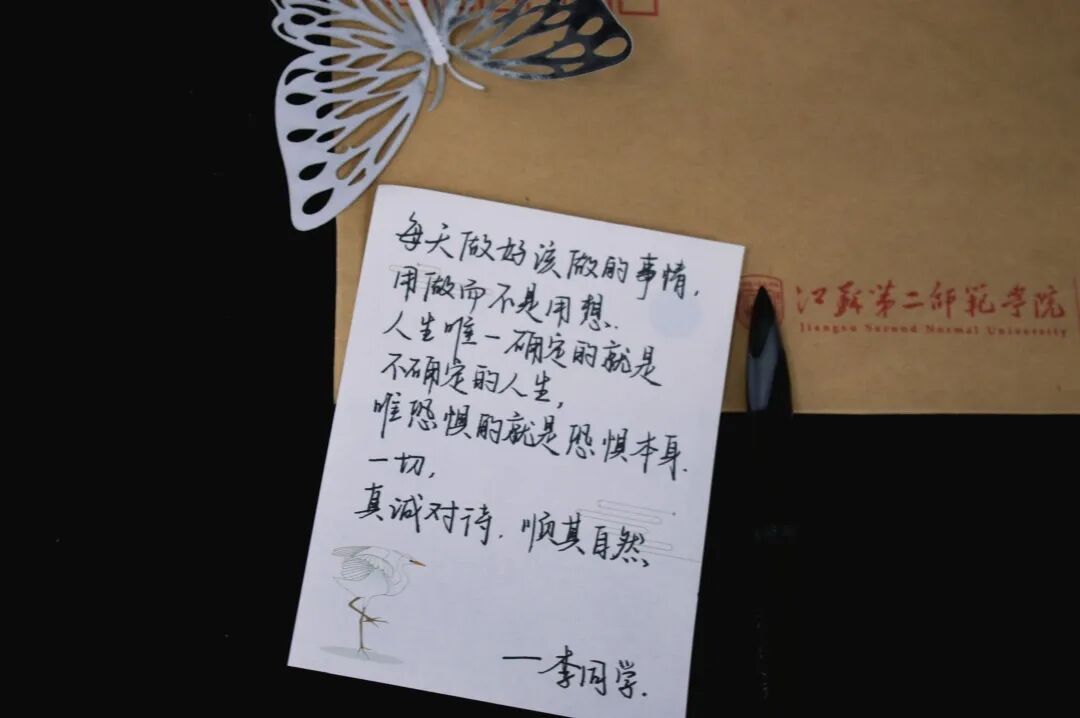 江苏第二师范学院
Jiangsu Second Normal University
每天做好该做的事情,
用做而不是用想.
人生唯一确定的就是
不确定的人生,
唯恐惧的就是恐惧本身.
一切,
真诚对诗.顺其自然.
—李同学.